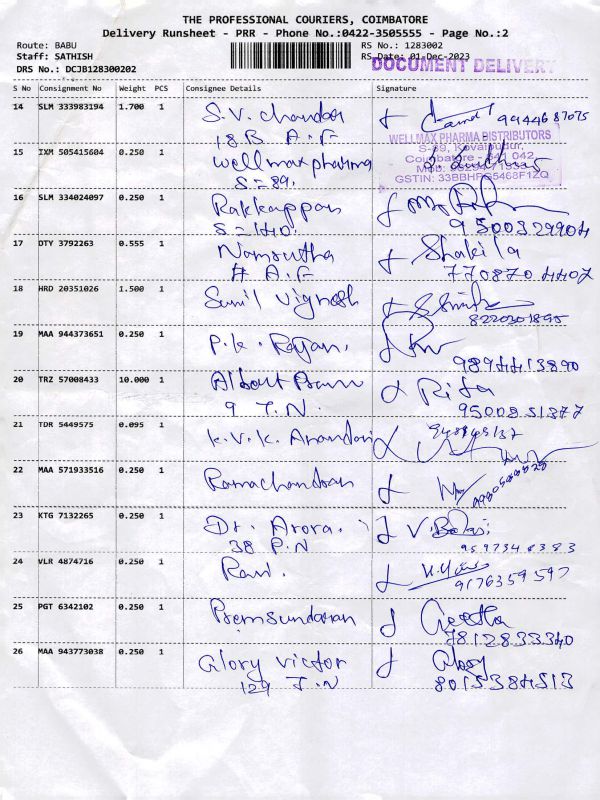 THE PROFESSIONAL COURIERS, COIMBATORE
Delivery Runsheet - PRR - Phone No.:0422-3505555 - Page No.:2
Route: BABU
Staff: SATHISH
DRS No.: DCJB128300202
RS No.: 1283002
RS Date: 01-Dec-2023
DOCUMENT DELIVERY
S No Consignment No Weight PCS Consignee Details Signature
14 SLM 333983194 1.700 1 S.V. chandar 9944687075
18.B A.F
WELLMAX PHARMA DISTRIBUTORS
S-89, Kovaipudur,
Coimbatore - 641 042
GSTIN: 33BBHFS5468F1ZQ
15 IXM 505415604 0.250 1 wellmax pharma
S=89.
16 SLM 334024097 0.250 1 Rakkappan
S=140. 9500329904
17 DTY 3792263 0.555 1 Namrutha Shakila
A.F 7708704407
18 HRD 20351026 1.500 1 Sunil Vignesh
8220301895
19 MAA 944373651 0.250 1 P.K. Rajan.
9894413890
20 TRZ 57008433 10.000 1 Rita
9 T.N. 9500851377
21 TDR 5449575 0.095 1 K.V.K. Anandan
22 MAA 571933516 0.250 1 Ramachandran
23 KTG 7132265 0.250 1 Dr. Arora.
38 P.N
24 VLR 4874716 0.250 1 Ravi.
9176359597
25 PGT 6342102 0.250 1 Premsundaran Geetha
7812833340
26 MAA 943773038 0.250 1 Glory Victor Glory
129 T.N 8015384513